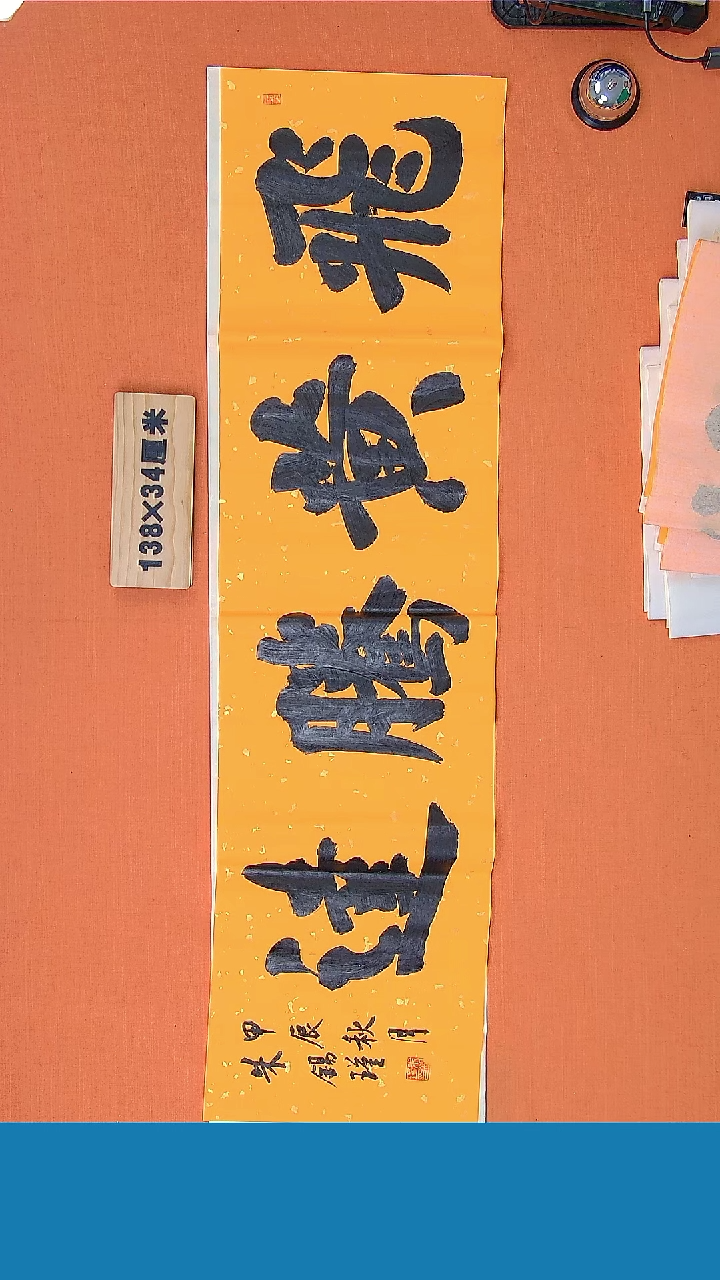 飛黄騰達
甲辰秋月
朱錫瑾
138×34厘米